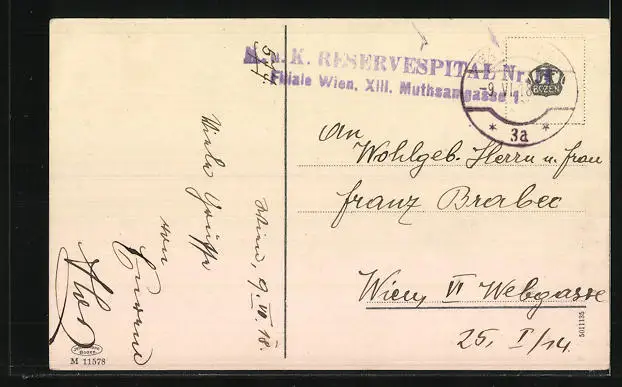 K. u. K. RESERVESPITAL Nr. 11
Filiale Wien, XIII. Muthsamgasse 1
-9.VI.18
* 3a *
BOZEN
An
Wohlgeb. Herrn u. Frau
Franz Brabec
Wien, VI Webgasse
25, I/14.
Wien, 9.VI.18.
Viele Grüße
von
Eurem
BOZEN
M 11578
5011135